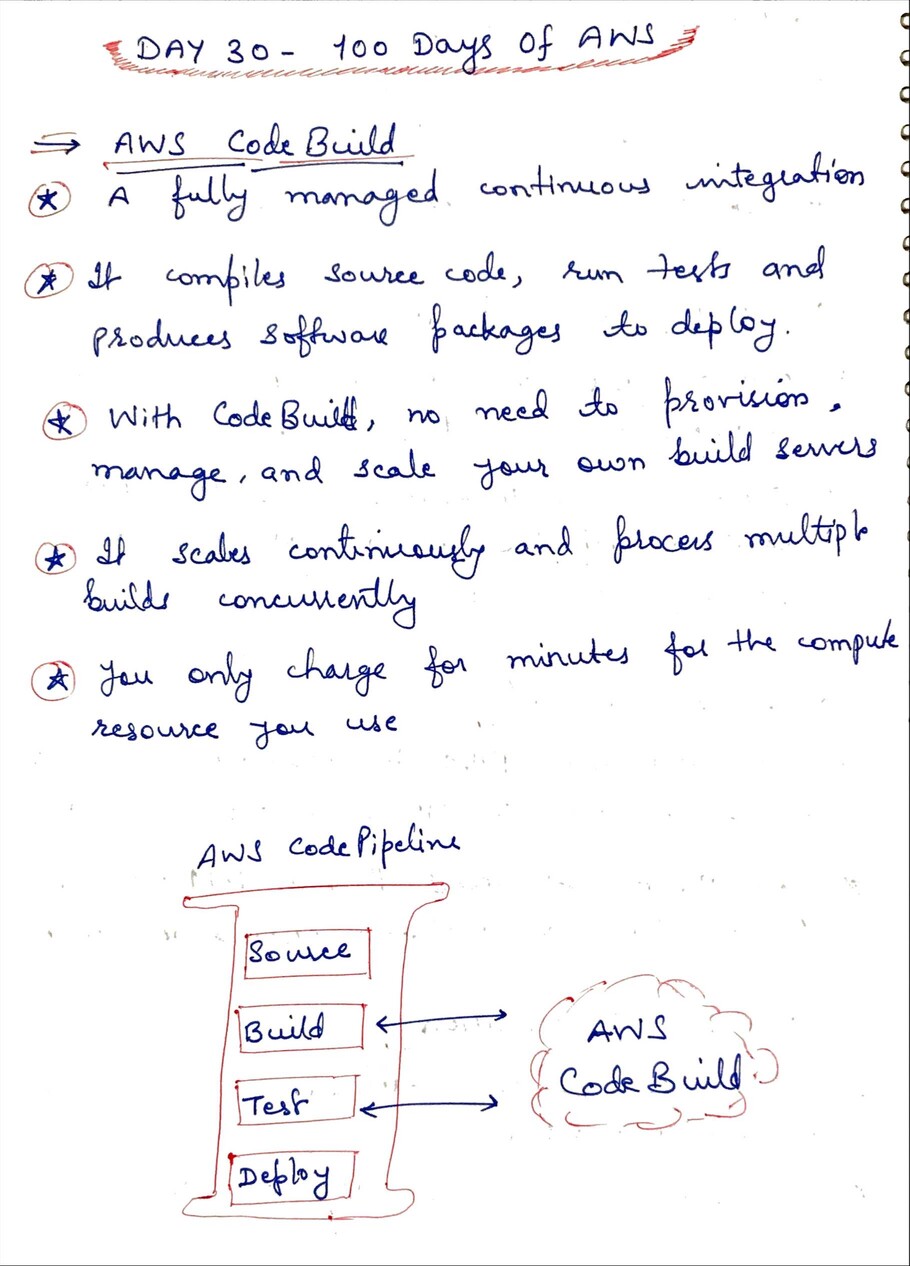 DAY 30 - 100 Days Of AWS
⇒ AWS CodeBuild
★ A fully managed continuous integration
★ It compiles source code, run tests and
produces software packages to deploy.
★ With CodeBuild, no need to provision,
manage, and scale your own build servers
★ It scales continuously and process multiple
builds concurrently
★ You only charge for minutes for the compute
resource you use
AWS CodePipeline
Source
Build
Test
Deploy
AWS
CodeBuild